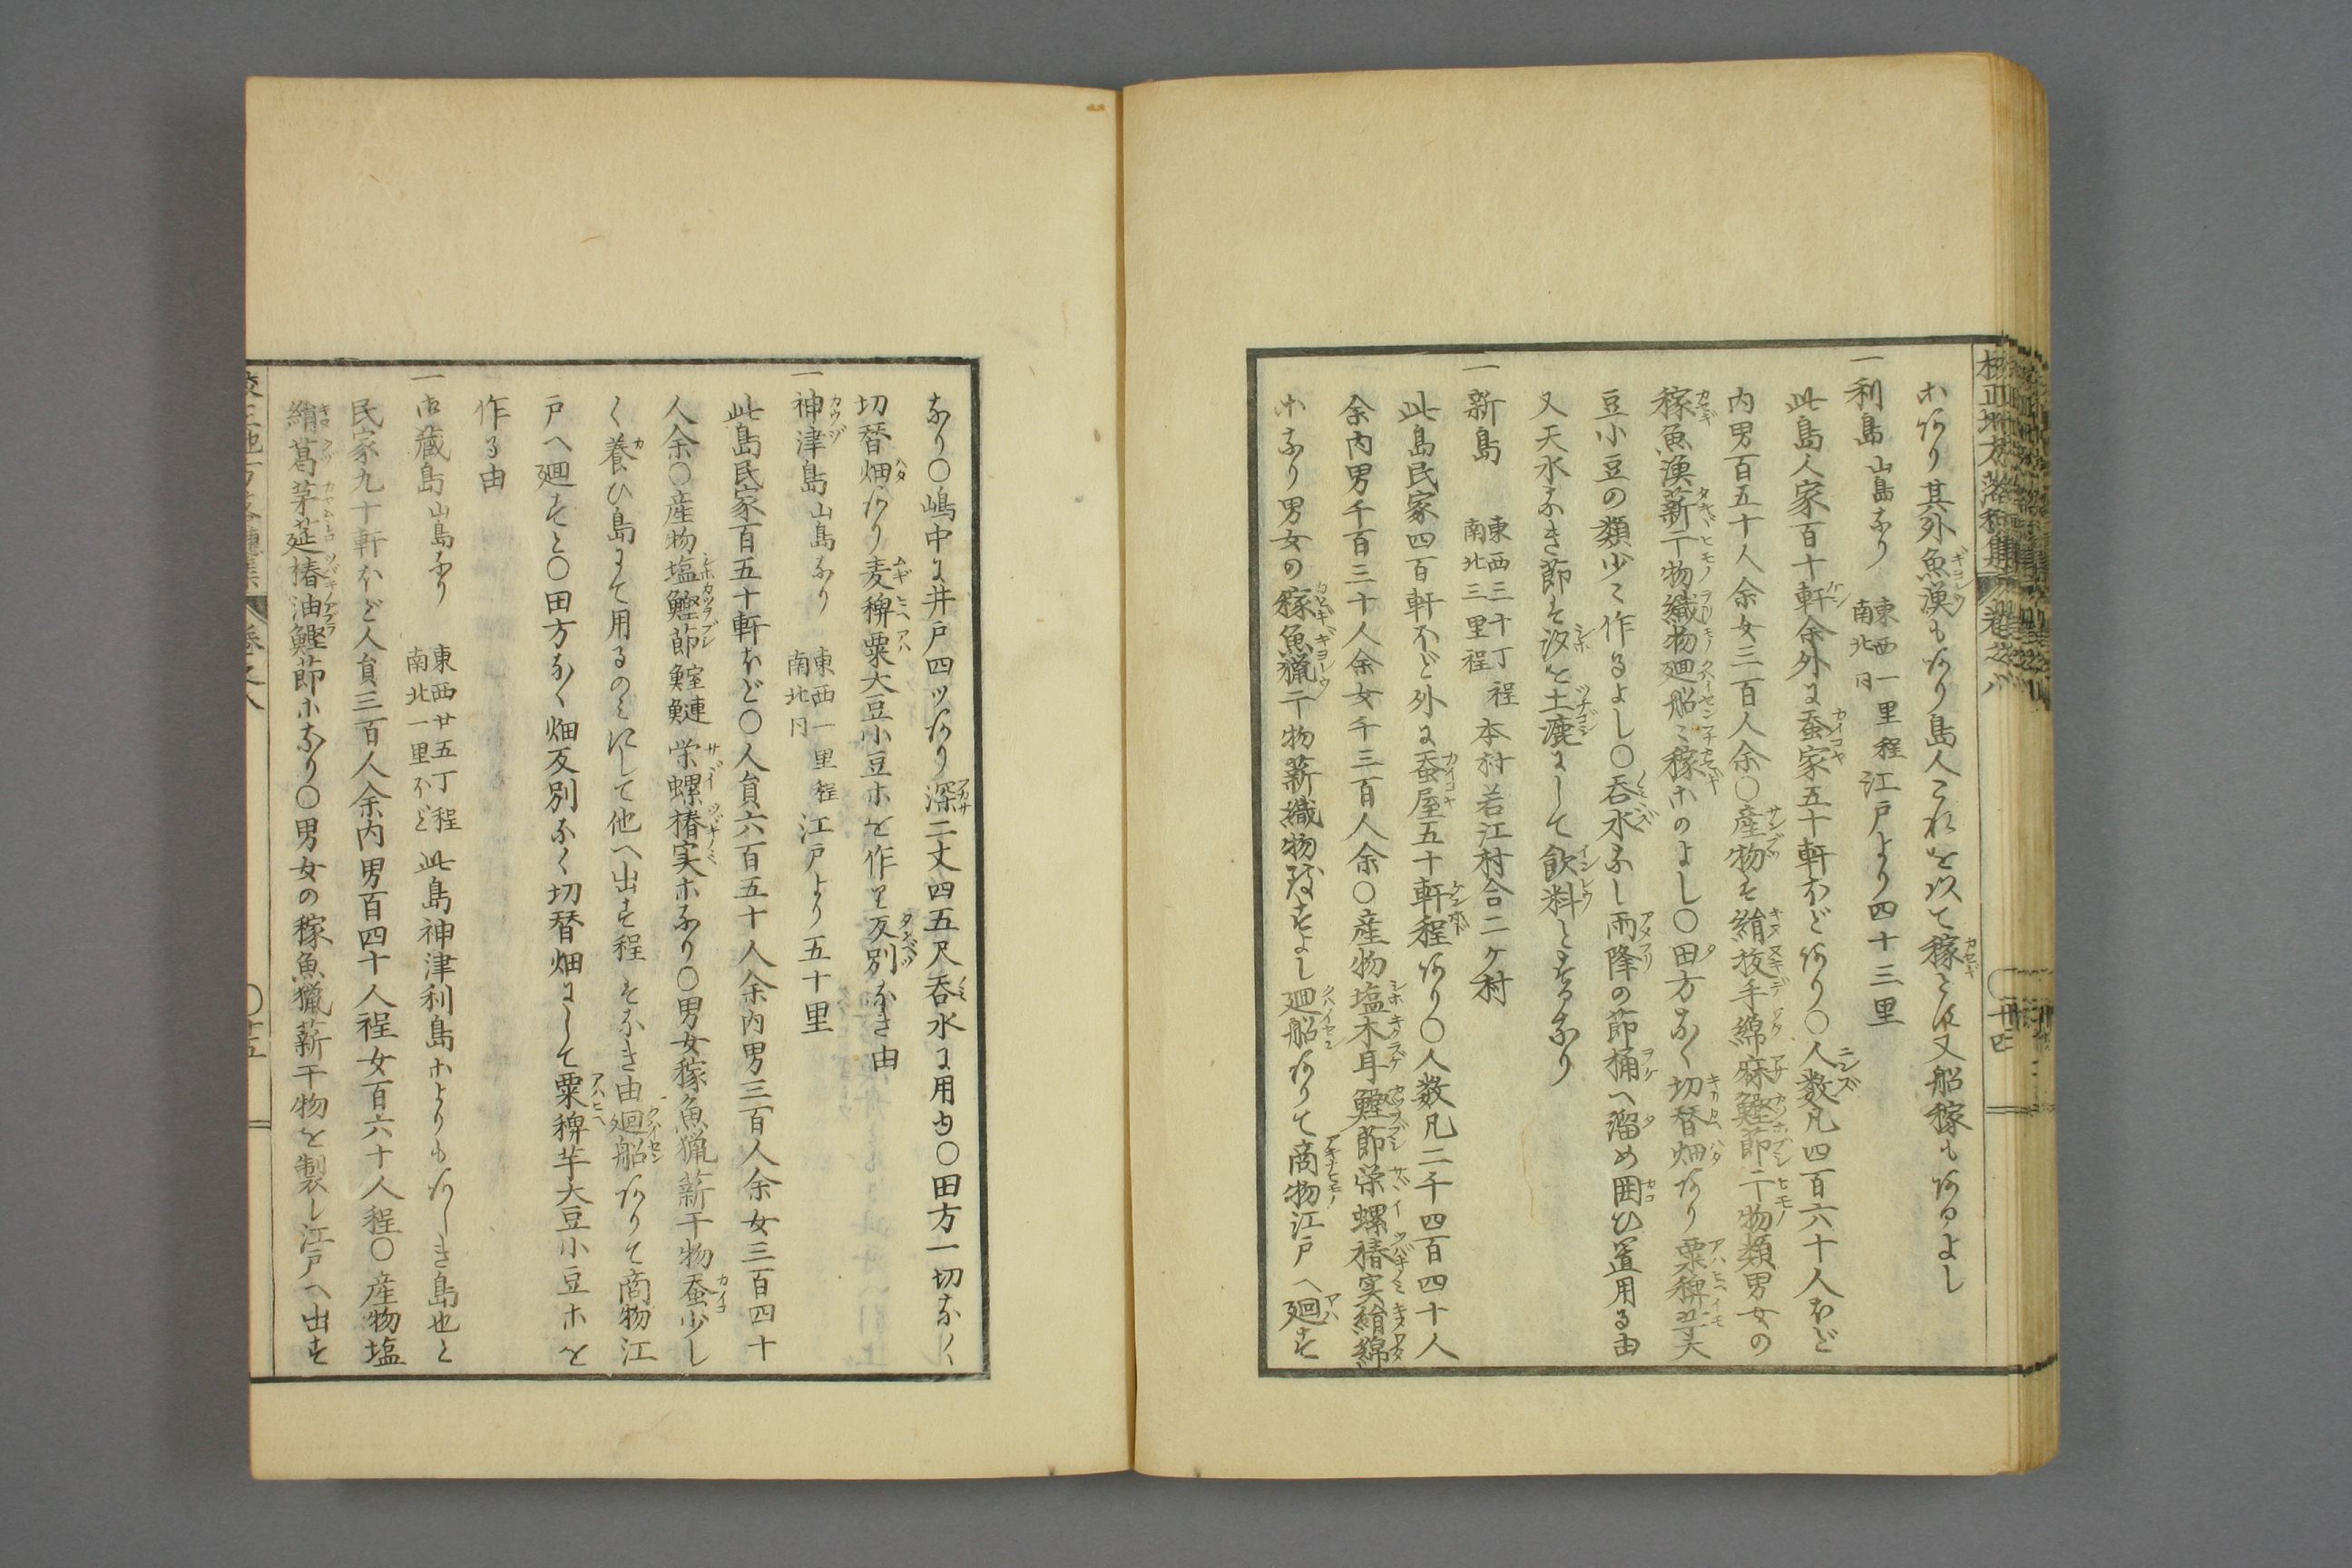 校正地方落穂集 巻之八 〇 十四
ホあり其外魚漁もあり島人これを以て稼とす又船稼もあるよし
一利島 山島なり 東西一里程 南北同 江戸より四十三里
此島人家百十軒余外に蚕家五十軒ほどあり〇人数凡四百六十人ほど
内男百五十人余女三百人余〇産物は絹抜手綿麻鰹節干物類男女の
稼魚漁薪干物織物廻船ニ稼ホのよし〇田方なく切替畑あり粟稗芋大
豆小豆の類少々作るよし〇呑水なし雨降の節桶へ溜め囲ひ置用る由
又天水なき節は汐を土漉にして飲料とするなり
一新島 東西三十丁程 南北三里程 本村若江村合二ケ村
此島民家四百軒ほど外に蚕屋五十軒程あり〇人数凡二千四百四十人
余内男千百三十人余女千三百人余〇産物塩木耳鰹節栄螺椿実絹綿
ホなり男女の稼魚猟干物薪織物致すよし廻船ありて商物江戸へ廻す
なり〇嶋中に井戸四ツあり深二丈四五尺呑水に用ゆ〇田方一切なく
切替畑あり麦稗粟大豆小豆ホを作り反別なき由
一神津島 山島なり 東西一里程 南北同 江戸より五十里
此島民家百五十軒ほど〇人員六百五十人余内男三百人余女三百四十
人余〇産物塩鰹節鰘鰱栄螺椿実ホなり〇男女稼魚猟薪干物蚕少し
く養ひ島にて用るのミにして他へ出す程はなき由廻船ありて商物江
戸へ廻すと〇田方なく畑反別なく切替畑にして粟稗芋大豆小豆ホを
作る由
一御蔵島 山島なり 東西廿五丁程 南北一里ほど 此島神津利島ホよりもあしき島也と
民家九十軒ほど人員三百人余内男百四十人程女百六十人程〇産物塩
絹葛茅莚椿油鰹節ホなり〇男女の稼魚猟薪干物を製し江戸へ出す
校正地方落穂集 巻之八 〇 十五